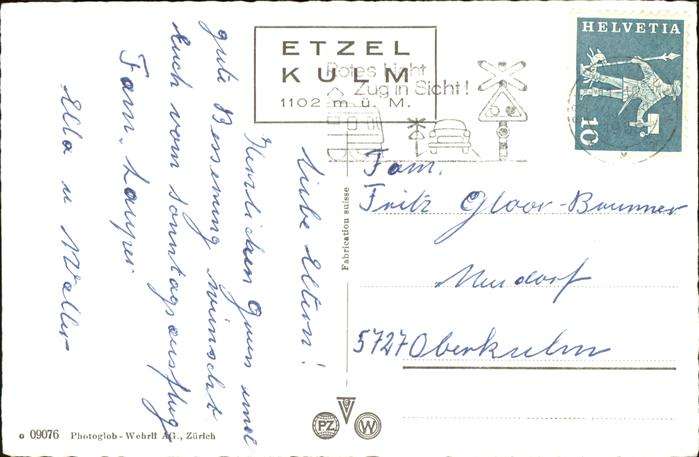 ETZEL
KULM
1102 m ü. M.
Rotes Licht
Zug in Sicht!
HELVETIA
10
Liebe Eltern!
Herzlichen Gruss und
gute Besserung wünscht
Euch vom Sonntagsausflug
Fam.
Ella u Walter
Fabrication suisse
Fam.
Fritz Gloor-Brunner
Neudorf
5727 Oberkulm
PZ
W
09076 Photoglob-Wehrli AG., Zürich